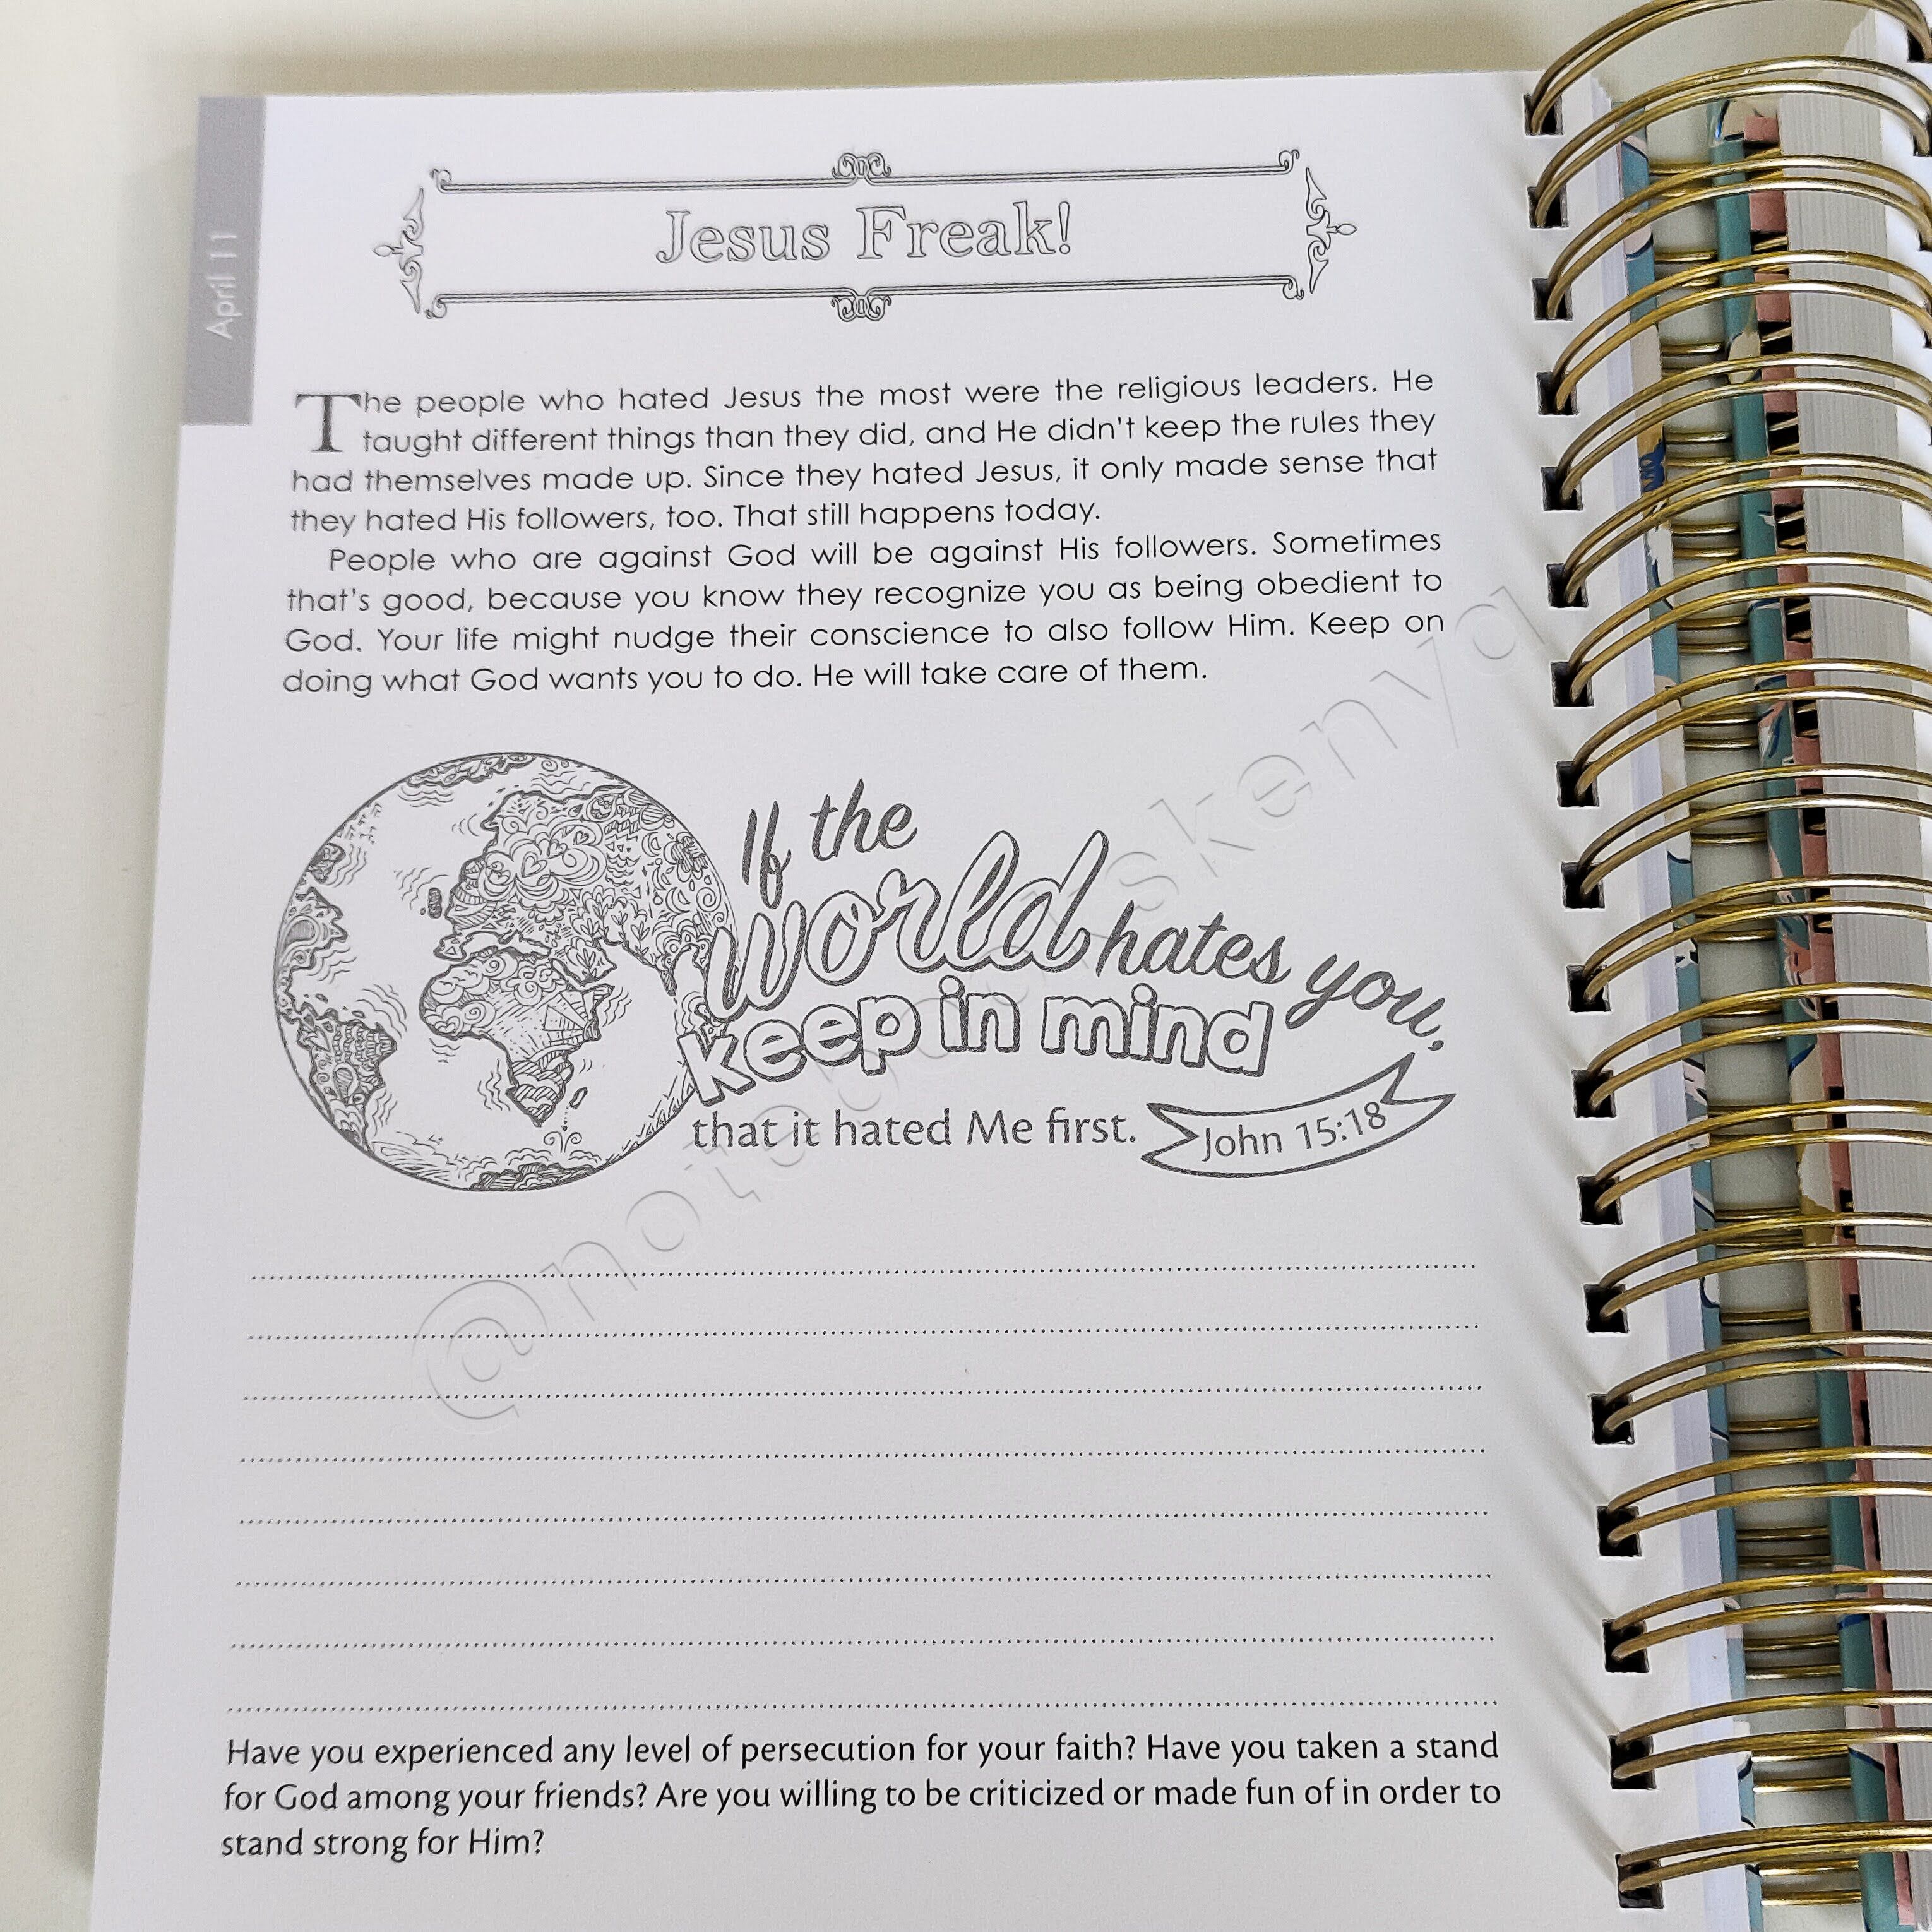 April 11
Jesus Freak!
The people who hated Jesus the most were the religious leaders. He
taught different things than they did, and He didn't keep the rules they
had themselves made up. Since they hated Jesus, it only made sense that
they hated His followers, too. That still happens today.
People who are against God will be against His followers. Sometimes
that's good, because you know they recognize you as being obedient to
God. Your life might nudge their conscience to also follow Him. Keep on
doing what God wants you to do. He will take care of them.
If the
world hates you,
keep in mind
that it hated Me first.
John 15:18
@notebookskenya
Have you experienced any level of persecution for your faith? Have you taken a stand
for God among your friends? Are you willing to be criticized or made fun of in order to
stand strong for Him?